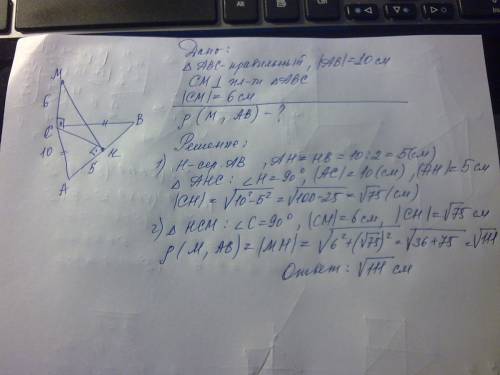 Дано:
△ ABC - правильный, |AB|=10 см
CM ⊥ пл-ти △ABC
|CM| = 6 см
ρ (M, AB) - ?
Решение:
1) H - сер. AB, AH = HB = 10:2 = 5 (см)
△ AHC: ∠H = 90°, |AC| = 10 (см), |AH| = 5 см
|CH| = √10²-5² = √100-25 = √75 (см)
2) △ HCM: ∠C = 90°, |CM| = 6 см, |CH| = √75 см
ρ (M, AB) = |MH| = √6²+(√75)² = √36+75 = √111
Ответ: √111 см
M
6
C
B
10
H
5
A